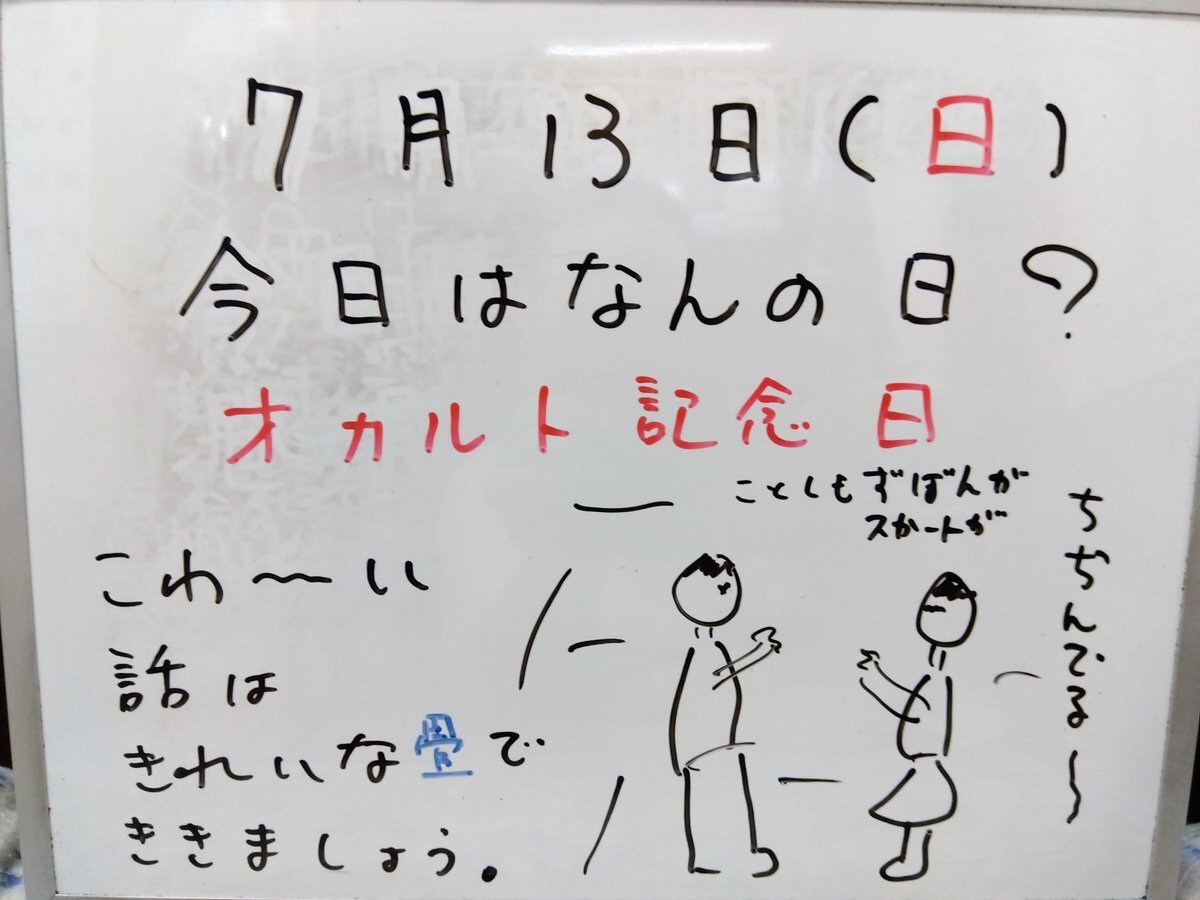 7月13日(日)
今日はなんの日?
オカルト記念日
ことしもずぼんが
スカートが
ちぢんでる〜
こわ〜い
話は
きれいな畳で
ききましょう。